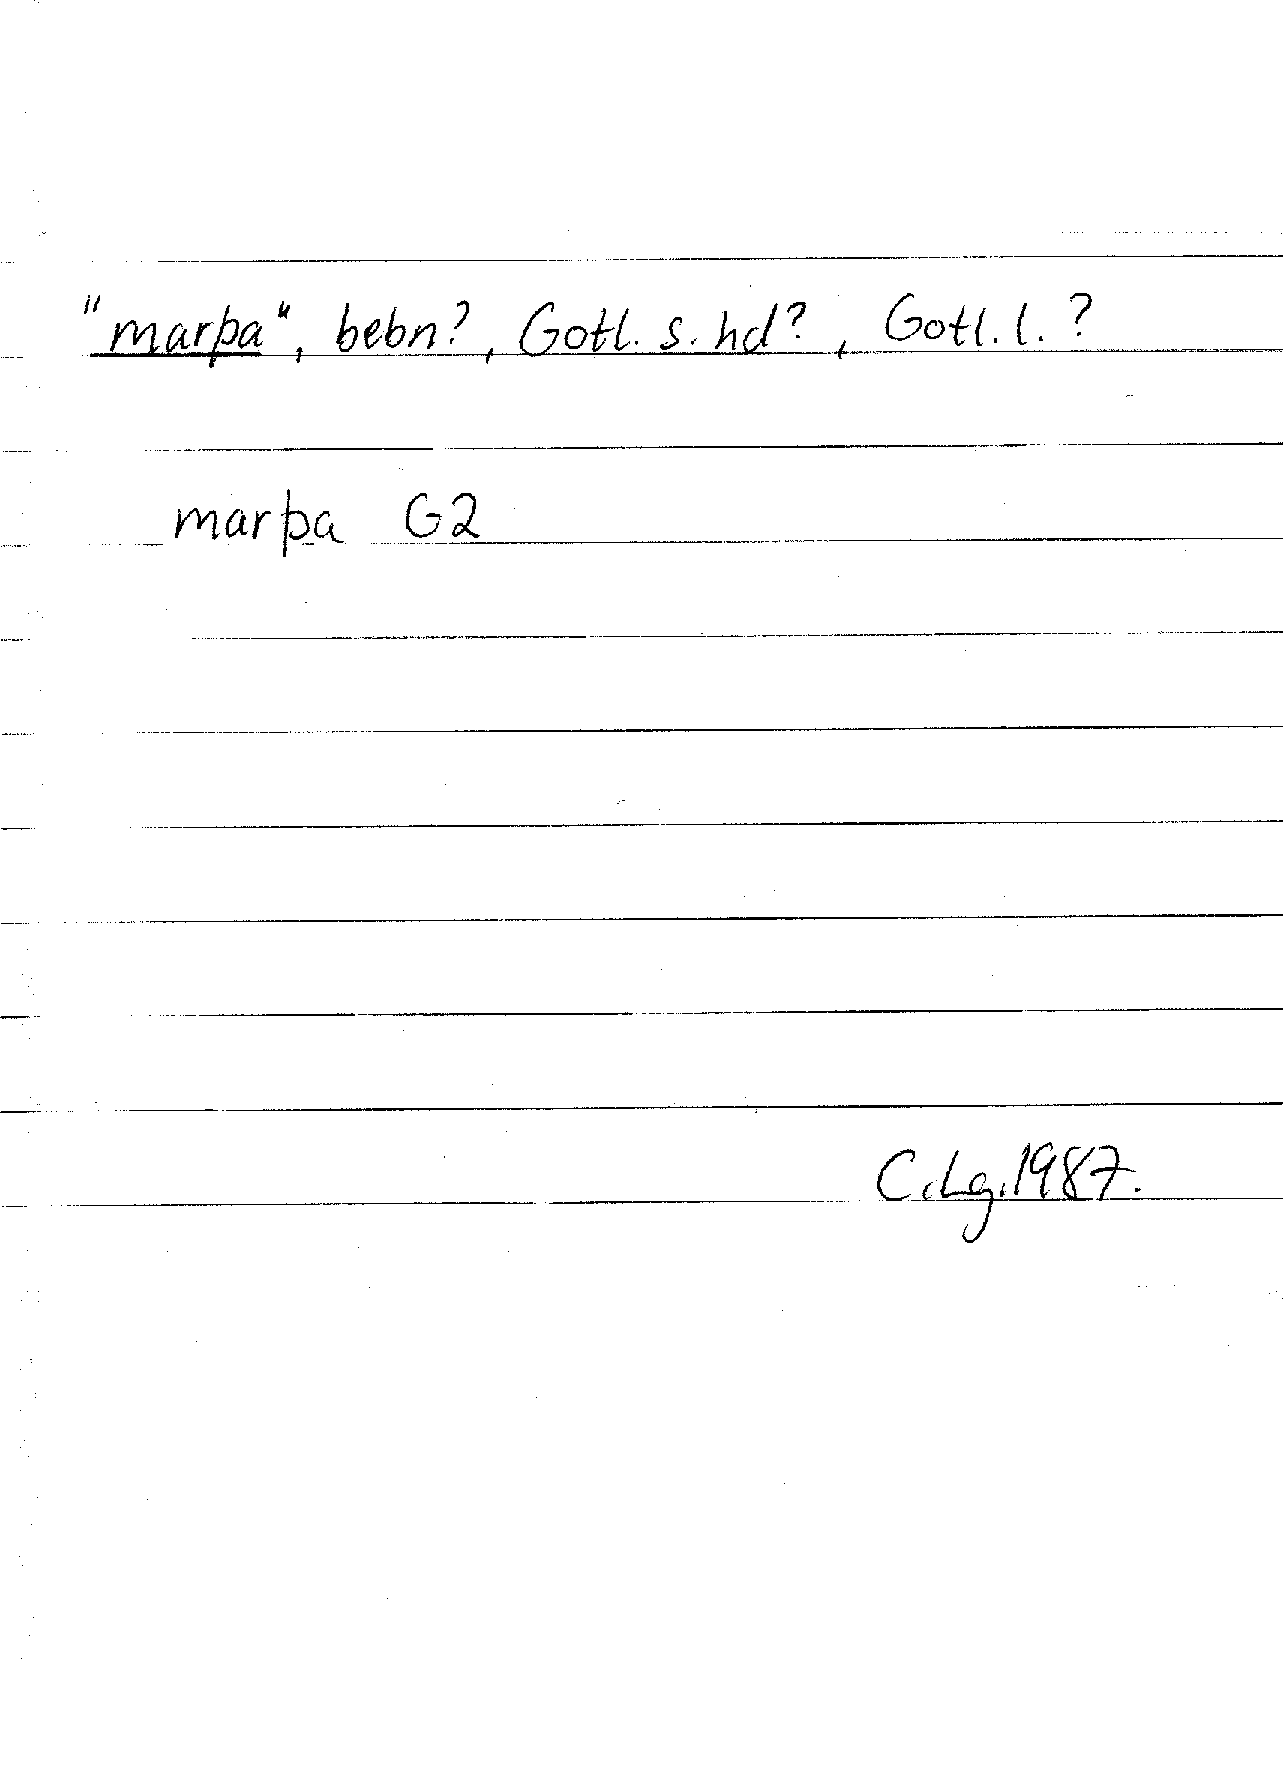 "marþa", bebn?, Gotl. s. hd?, Gotl. l. ?
marþa G2
C.Lg.1987.